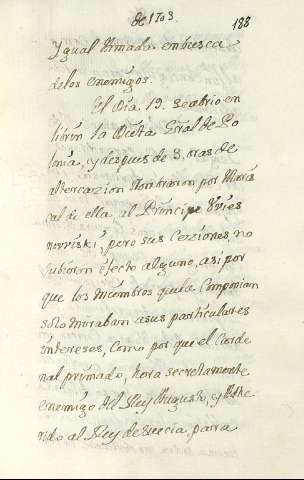 de 1703.
188
Ygual Armada em busca
de los enemigos.
El Dia 19. se abrio en
la Dieta Gral de Po
lonia, y despues de 3. oras de
altercazion Nombraron por Maris
cal de ella, al Principe Vvies
novviski, pero sus Cezziones, no
tubieron efecto alguno, asi por
que los miembros que la Componian
solo miraban a sus particulares
intereses, Como por que el Carde
nal primado, hera secretamente
enemigo del Rey Augusto, y Adhe
rido al Rey de Suecia, para